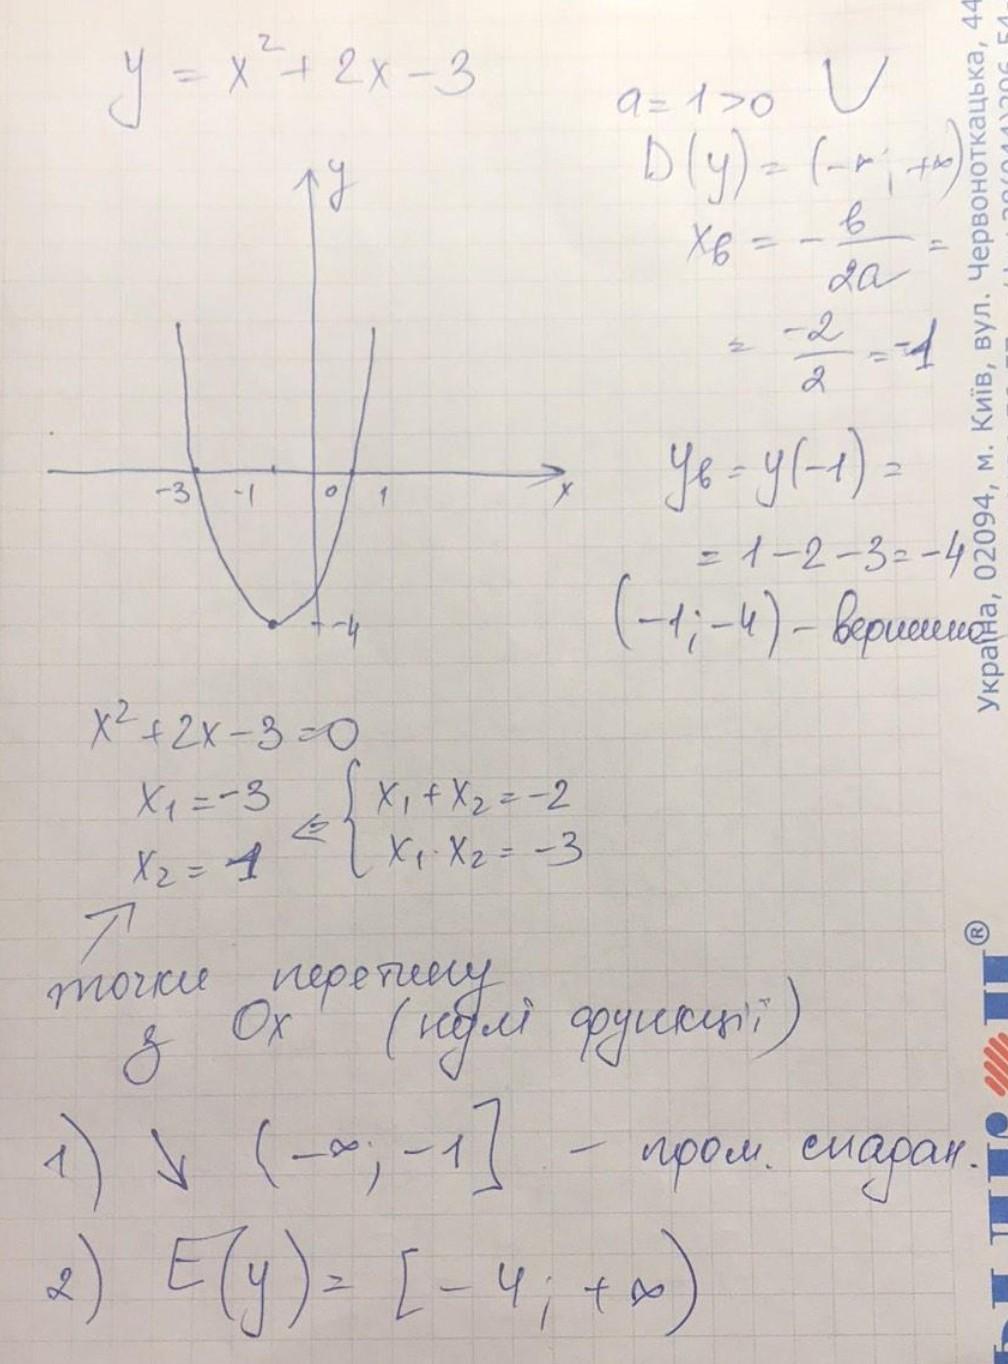 y = x² + 2x - 3
a = 1 > 0
D(y) = (-∞; +∞)
xв = - в/2a =
= -2/2 = -1
yв = y(-1) =
= 1 - 2 - 3 = -4
(-1; -4) - вершина
y
-3 -1 0 1 x
-4
x² + 2x - 3 = 0
x₁ = -3 ⇐ { x₁ + x₂ = -2
x₂ = 1 x₁ · x₂ = -3
точки перетину
з Ox (нулі функції)
1) ↘ (-∞; -1] - пром. спадан.
2) E(y) = [-4; +∞)
Україна, 02094, м. Київ, вул. Червоноткацька, 44
®